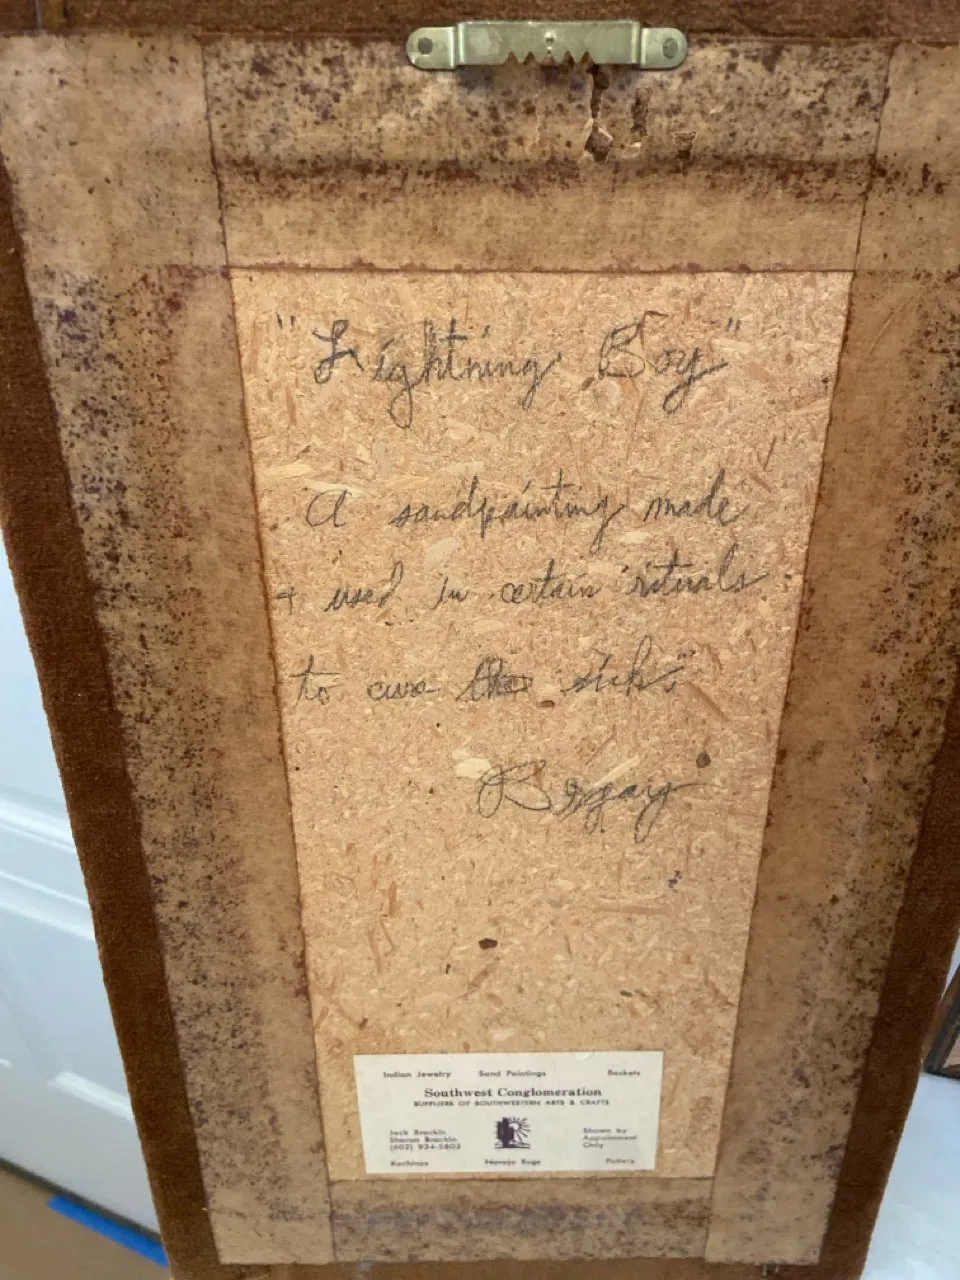 "Lightning Boy"
A sandpainting made
+ used in certain rituals
to cure the sick."
Begay
Indian Jewelry Sand Paintings Baskets
Southwest Conglomeration
SUPPLIERS OF SOUTHWESTERN ARTS & CRAFTS
Jack Brackin
Sharon Brackin
(602) 934-5802
Shown by
Appointment
Only
Kachinas Navajo Rugs Pottery